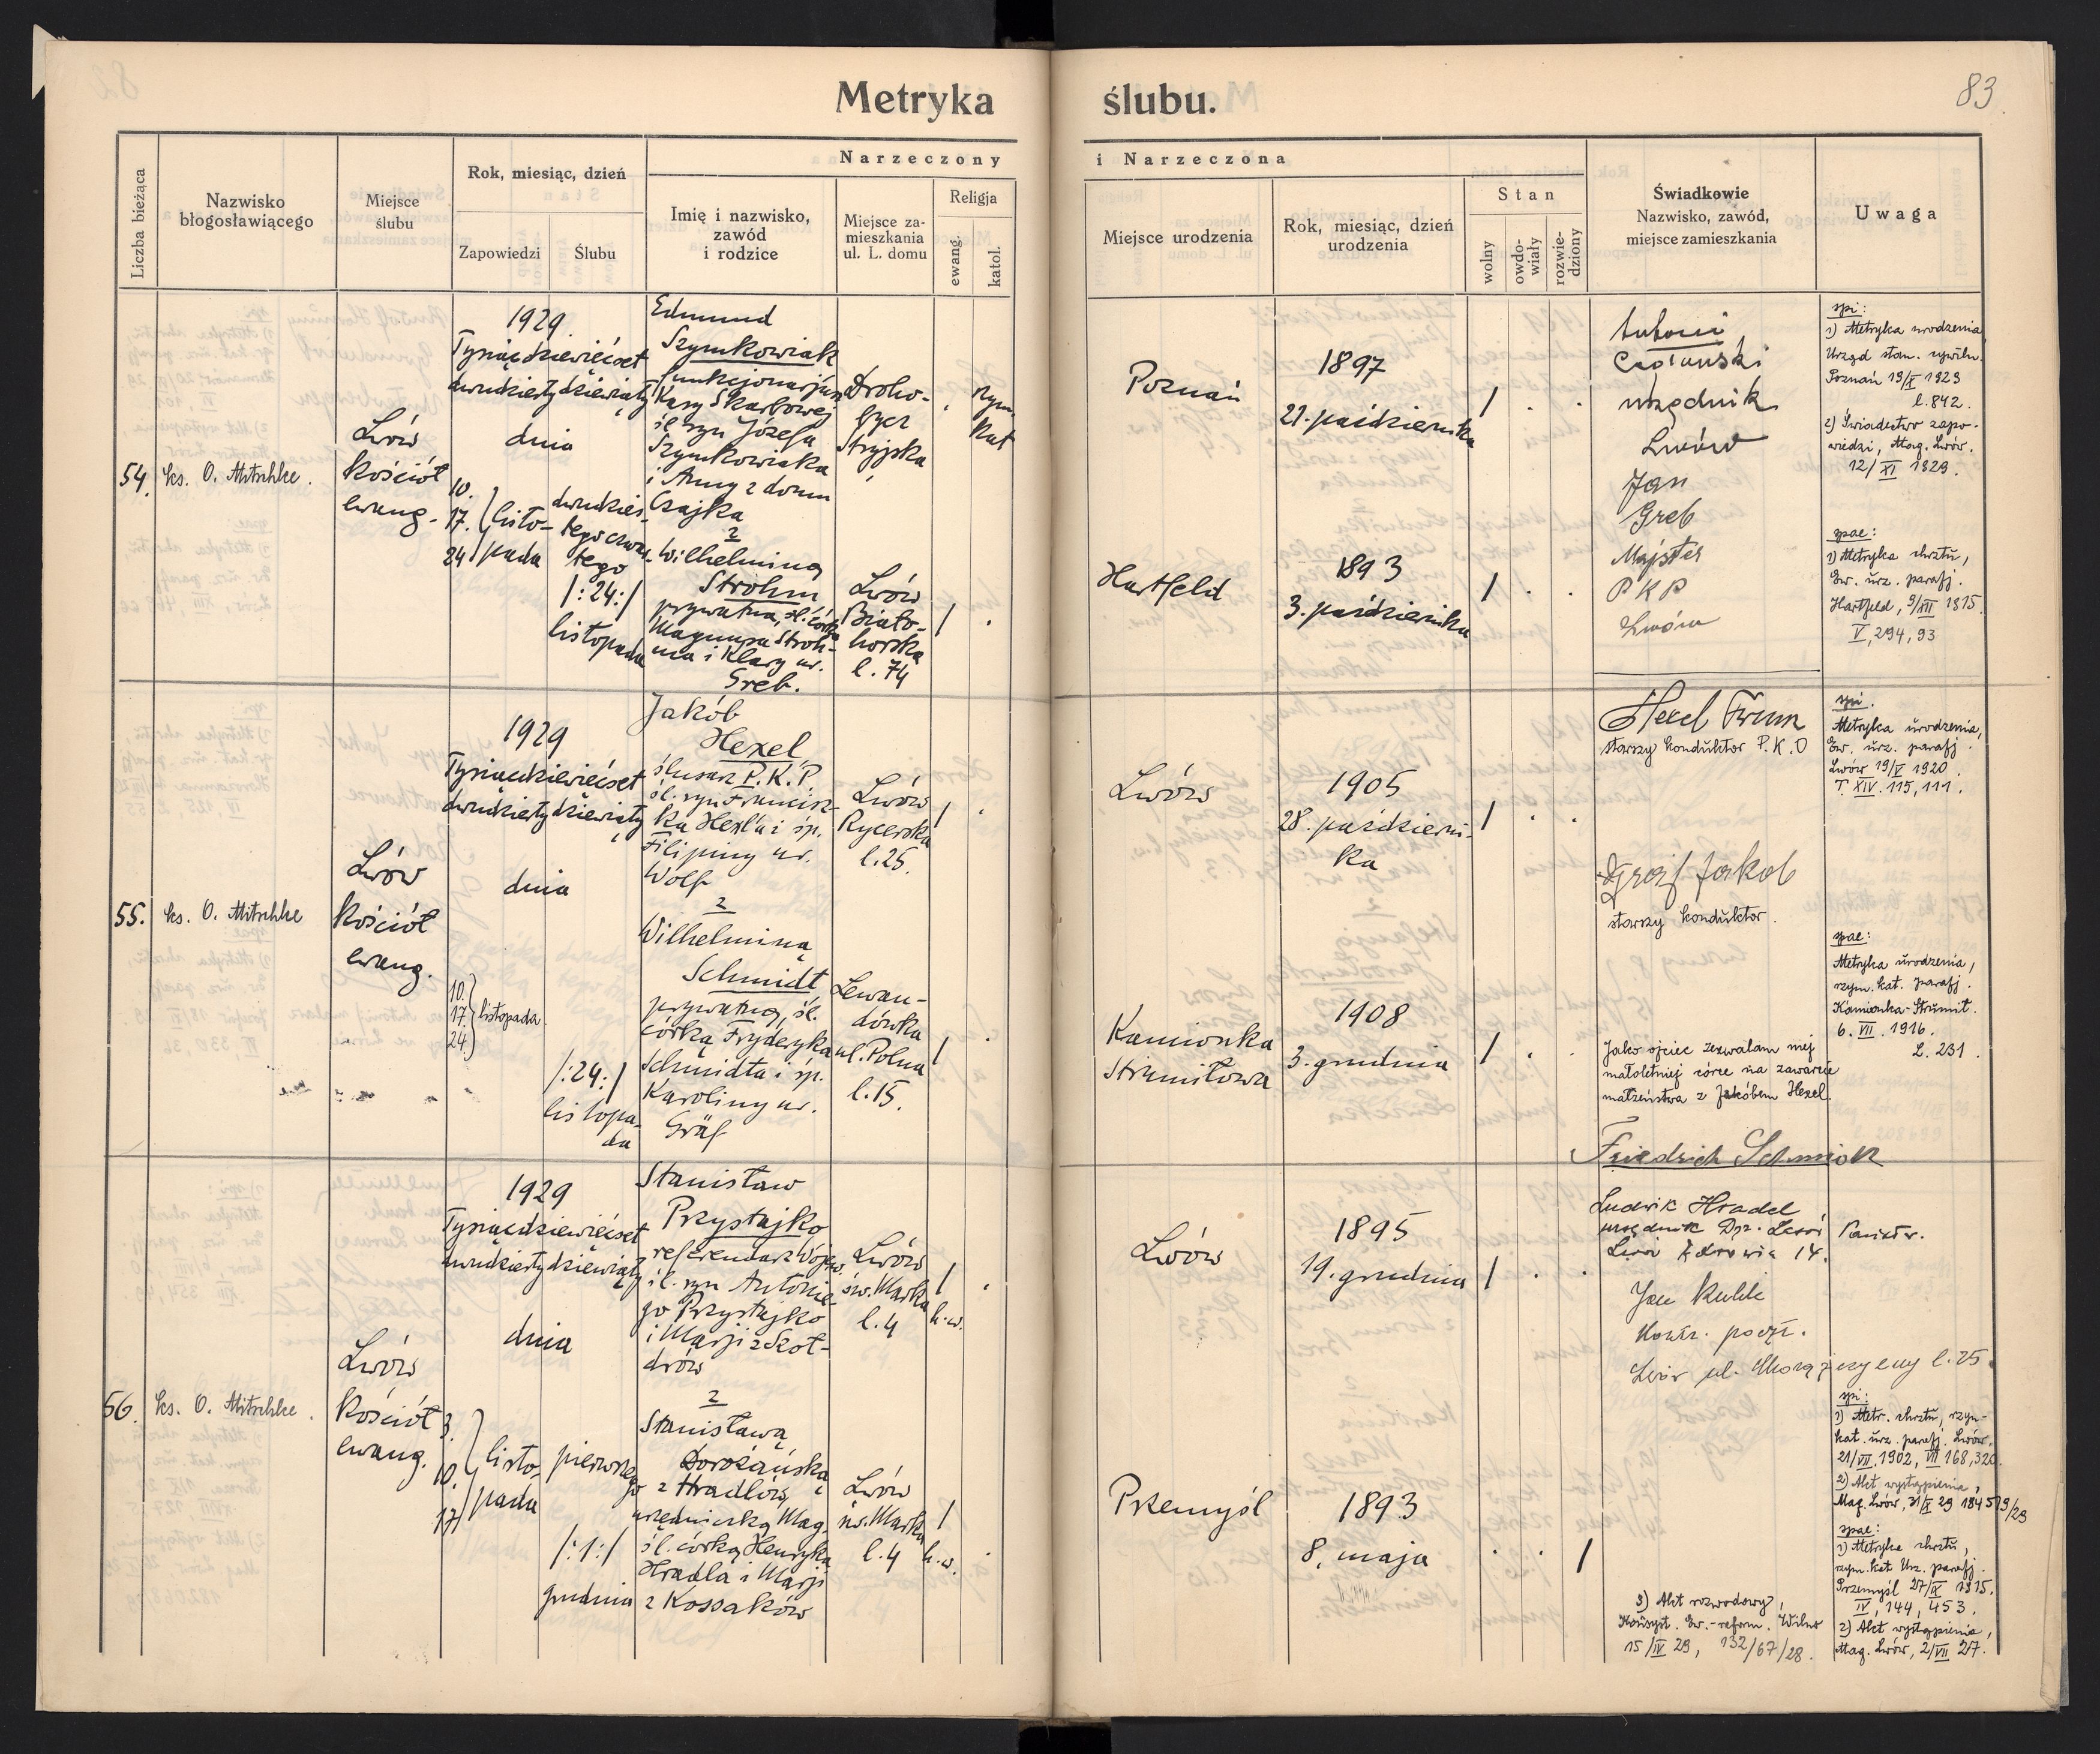 Metryka ślubu.
83
Liczba bieżąca
Nazwisko
błogosławiącego
Miejsce
ślubu
Rok, miesiąc, dzień
Zapowiedzi
Ślubu
Narzeczony
Imię i nazwisko,
zawód
i rodzice
Miejsce za-
mieszkania
ul. L. domu
Religja
ewang.
katol.
i Narzeczona
Miejsce urodzenia
Rok, miesiąc, dzień
urodzenia
Stan
wolny
owdo-
wiały
rozwie-
dziony
Świadkowie
Nazwisko, zawód,
miejsce zamieszkania
Uwaga
54.
ks. O. Mitschke.
Lwów
kościół
ewang.
1929
Tysiącdziewięćset
dwudziestydziewiąty
dnia
10.
17. listo-
24 pada
dwudzies-
tegoczwar-
tego
/:24:/
listopada
Edmund
Szymkowiak
funkcjonarjusz
Kasy Skarbowej
śl. syn Józefa
Szymkowiaka
i Anny z domu
Czajka
z
Wilhelminą
Strohm
prywatną, śl. córką
Magnusa Stroh-
ma i Klary ur.
Greb.
Droho-
bycz
Stryjska
Rzym.
Kat
Lwów
Biało-
horska
l. 74
Poznań
1897
21. października
Hartfeld
1893
3. października
Antoni
urzędnik
Lwów
Jan
Greb
Majster
PKP
Lwów
spi:
1) Metryka urodzenia
Urząd stan. cywiln.
Poznań 19/X 1929
l. 842.
2) Świadectwo zapo-
wiedzi, Mag. Lwów.
12/XI 1929.
spae:
1) Metryka chrztu,
Ew. urz. parafj.
Hartfeld, 9/XII 1915.
V, 294, 93
55.
ks. O. Mitschke
Lwów
Kościół
ewang.
1929
Tysiącdziewięćset
dwudziestydziewiąty
dnia
10.
17. listopada
24.
/:24:/
listopa-
da
Jakób
Hexel
ślusarz P.K.P.
śl. syn Francisz-
ka Hexla i śp.
Filipiny ur.
Wolf
z
Wilhelminą
Schmidt
prywatną, śl.
córką Fryderyka
Schmidta i śp.
Karoliny ur.
Gräf
Lwów
Rycerska
l. 25.
Lewan-
dówka
ul. Polna
l. 15.
Lwów
1905
28. październi-
ka
Kamionka
Strumiłowa
1908
3. grudnia
Hexel Franz
starszy konduktor P.K.O
Gräf Jakob
starszy konduktor.
Jako ojciec zezwalam mej
małoletniej córce na zawarcie
małżeństwa z Jakóbem Hexel.
Friedrich Schmidt
spi.
Metryka urodzenia,
Ew. urz. parafj.
Lwów 19/V 1920.
T. XIV. 115, 111.
spae:
Metryka urodzenia,
rzym. kat. parafj.
Kamionka-Strumił.
6. VII. 1916.
L. 231.
56.
ks. O. Mitschke.
Lwów
Kościół
ewang.
1929
Tysiącdziewięćset
dwudziestydziewiąty
dnia
3.
10. listo-
17. pada
pierwsze-
go
/:1:/
grudnia
Stanisław
Przystajko
referendarz Wojew.
śl. syn Antonie-
go Przystajko
i Marji z Szot-
drów
z
Stanisławą
Dorożańską
z Hradlów
urzędniczką Mag.
śl. córką Henryka
Hradla i Marji
z Kossaków
Lwów
św. Marka
l. 4
h.w.
Lwów
św. Marka
l. 4
h.w.
Lwów
1895
19. grudnia
Przemyśl
1893
8. maja
Ludwik Hradel
urzędnik Dyr. Lasów Państw.
Lwów Zdrowia 14.
Jan
Kontr. poczt.
Lwów ul. Chorążczyzny l. 25.
3) Akt rozwodowy,
Konsyst. Ew.-reform. Wilno
15/IV 29, 132/67/28.
spi:
1) Metr. chrztu, rzym-
kat. urz. parafj. Lwów.
21/VII. 1902, VII 168, 320.
2) Akt wystąpienia,
Mag. Lwów, 31/X 29 184519/29
spae:
1) Metryka chrztu,
rzym. kat Urz. parafj.
Przemyśl 27/IX 1915.
IV, 144, 453.
2) Akt wystąpienia,
Mag. Lwów, 2/VII 27.